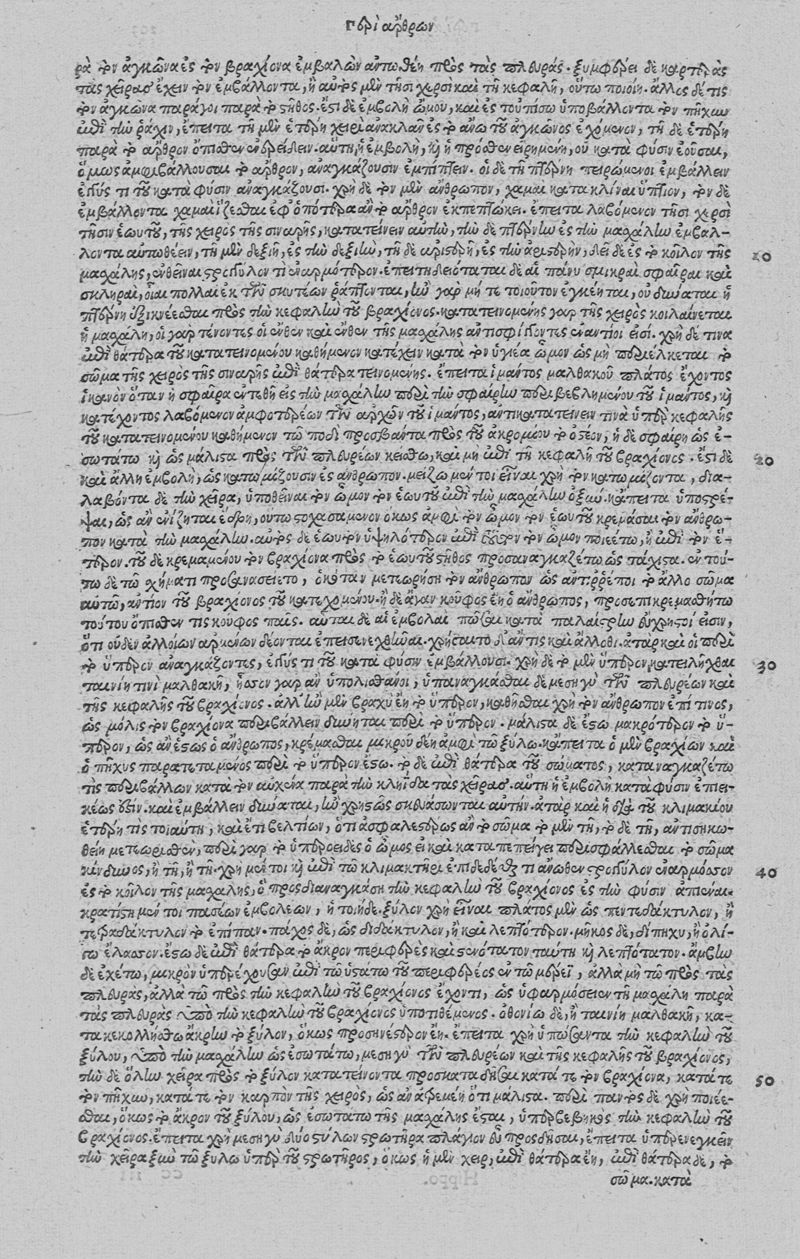 Περὶ ἄρθρων
ρὰ τὸν ἀγκῶνα ἐς τὸν βραχίονα ἐμβαλὼν ἀπωθέῃ πρὸς τὰς πλευράς. ξυμφέρει δὲ καρτερὰς
τὰς χεῖρας ἔχειν τὸν ἐμβάλλοντα, ἢ αὐτὸς μὲν τῇσι χερσὶ καὶ τῇ κεφαλῇ, οὕτω ποιοίη. ἄλλος δέ τις
τὸν ἀγκῶνα παράγοι παρὰ τὸ στῆθος. ἔστι δὲ ἐμβολὴ ὤμου, καὶ ἐς τοὐπίσω ὑποβάλλοντα τὸν πῆχυν
ἐπὶ τὴν ῥάχιν, ἔπειτα τῇ μὲν ἑτέρῃ χειρὶ ἀνακλᾶν ἐς τὸ ἄνω τοῦ ἀγκῶνος ἐχόμενον, τῇ δὲ ἑτέρῃ
παρὰ τὸ ἄρθρον ὄπισθεν ἐνερείδειν. αὕτη ἡ ἐμβολὴ, καὶ ἡ πρόσθεν εἰρημένη, οὐ κατὰ φύσιν ἐοῦσαι,
ὅμως ἀμφιβάλλουσαι τὸ ἄρθρον, ἀναγκάζουσιν ἐμπίπτειν. οἱ δὲ τῇ πτέρνῃ πειρώμενοι ἐμβάλλειν
ἐγγύς τι τοῦ κατὰ φύσιν ἀναγκάζουσι. χρὴ δὲ τὸν μὲν ἄνθρωπον, χαμαὶ κατακλῖναι ὕπτιον, τὸν δὲ
ἐμβάλλοντα χαμαὶ ἵζεσθαι ἐφ' ὁπότερα ἂν τὸ ἄρθρον ἐκπεπτώκει. ἔπειτα λαβόμενον τῇσι χερσὶ
τῇσιν ἑωυτοῦ, τῆς χειρὸς τῆς σιναρῆς, κατατείνειν αὐτὴν, τὴν δὲ πτέρνην ἐς τὴν μασχάλην ἐμβάλ-
λοντα ἀπωθέειν, τῇ μὲν δεξιῇ, ἐς τὴν δεξιὴν, τῇ δὲ ἀριστερῇ, ἐς τὴν ἀριστερὴν, δεῖ δὲ ἐς τὸ κοῖλον τῆς
μασχάλης, ἐνθεῖναι στρογγύλον τι ἐναρμόττον. ἐπιτηδειόταται δὲ αἱ πάνυ σμικραὶ σφαῖραι καὶ
σκληραὶ, οἷαι πολλαὶ ἐκ τῶν σκυτέων ῥάπτονται, ἢν γὰρ μή τι τοιοῦτον ἐγκέηται, οὐ δύναται ἡ
πτέρνη ἐξικνέεσθαι πρὸς τὴν κεφαλὴν τοῦ βραχίονος. κατατεινομένης γὰρ τῆς χειρὸς κοιλαίνεται
ἡ μασχάλη, οἱ γὰρ τένοντες οἱ ἔνθεν καὶ ἔνθεν τῆς μασχάλης ἀντισφίγγοντες ἐναντίοι εἰσί. χρὴ δέ τινα
ἐπὶ θάτερα τοῦ κατατεινομένου καθήμενον κατέχειν κατὰ τὸν ὑγιέα ὦμον ὡς μὴ περιέλκεται τὸ
σῶμα τῆς χειρὸς τῆς σιναρῆς ἐπὶ θάτερα τεινομένης. ἔπειτα ἱμάντος μαλθακοῦ πλάτος ἔχοντος
ἱκανὸν ὅταν ἡ σφαῖρα ἐντεθῇ εἰς τὴν μασχάλην περὶ τὴν σφαῖρην περιβεβλημένου τοῦ ἱμάντος, καὶ
κατέχοντος λαβόμενον ἀμφοτερέων τῶν ἀρχῶν τοῦ ἱμάντος, ἀντικατατείνειν τινὰ ὑπὲρ κεφαλῆς
τοῦ κατατεινομένου καθήμενον τῷ ποδὶ προσβάντα πρὸς τοῦ ἀκρομίου τὸ ὀστέον, ἡ δὲ σφαίρη ὡς ἐ-
σωτάτω καὶ ὡς μάλιστα πρὸς τῶν πλευρέων κείσθω, καὶ μὴ ἐπὶ τῇ κεφαλῇ τοῦ βραχίονος. ἔστι δὲ
καὶ ἄλλη ἐμβολὴ, ὡς κατωμίζουσιν ἐς ἄνθρωπον. μείζω μέντοι εἶναι χρὴ τὸν κατωμίζοντα, δια-
λαβόντα δὲ τὴν χεῖρα, ὑποθεῖναι τὸν ὦμον τὸν ἑωυτοῦ ἐπὶ τὴν μασχάλην ὀξύν. κἄπειτα ὑποστρέ-
ψαι, ὡς ἂν ἐνίζηται ἕδρῃ, οὕτω στοχασάμενον ὅκως ἀμφὶ τὸν ὦμον τὸν ἑωυτοῦ κρεμάσαι τὸν ἄνθρω-
πον κατὰ τὴν μασχάλην. αὐτὸς δὲ ἑωυτὸν ὑψηλότερον ἐπὶ τοῦτον τὸν ὦμον ποιεέτω, ἢ ἐπὶ τὸν ἕ-
τερον. τοῦ δὲ κρεμαμένου τὸν βραχίονα πρὸς τὸ ἑωυτοῦ στῆθος προσαναγκαζέτω ὡς τάχιστα. ἐν τού-
τῳ δὲ τῷ σχήματι προσανασειέτω, ὁκόταν μετεωρήσῃ τὸν ἄνθρωπον ὡς ἀντιρρέποι τὸ ἄλλο σῶμα
αὐτῷ, ἀντίον τοῦ βραχίονος τοῦ κατεχομένου. ἢν δὲ ἄγαν κοῦφος ἔῃ ὁ ἄνθρωπος, προσεπικρεμασθήτω
τούτου ὄπισθεν τις κοῦφος παῖς. αὗται δὲ αἱ ἐμβολαὶ πᾶσαι κατὰ παλαίστρην εὔχρηστοί εἰσιν,
ὅτι οὐδὲν ἀλλοίων ἀρμένων δέονται ἐπεισενεχθῆναι. χρήσαιτο δ' ἄν τις καὶ ἄλλοθι. ἀτὰρ καὶ οἱ περὶ
τὸ ὕπερον ἀναγκάζοντες, ἐγγύς τι τοῦ κατὰ φύσιν ἐμβάλλουσι. χρὴ δὲ τὸ μὲν ὕπερον κατειλῆχθαι
ταινίῃ τινὶ μαλθακῇ, ἧσσον γὰρ ἂν ὑπολισθάνοι, ὑπαναγκάσθαι δὲ μεσηγὺ τῶν πλευρέων καὶ
τῆς κεφαλῆς τοῦ βραχίονος. ἀλλ' ἢν μὲν βραχὺ ἔῃ τὸ ὕπερον, καθῆσθαι χρὴ τὸν ἄνθρωπον ἐπί τινος,
ὡς μόλις τὸν βραχίονα περιβάλλειν δύνηται περὶ τὸ ὕπερον. μάλιστα δὲ ἔστω μακρότερον τὸ ὕ-
περον, ὡς ἂν ἑστὼς ὁ ἄνθρωπος, κρέμασθαι μικροῦ δέῃ ἀμφὶ τῷ ξύλῳ. κἄπειτα ὁ μὲν βραχίων καὶ
ὁ πῆχυς παρατεταμένος περὶ τὸ ὕπερον ἔστω. τὸ δὲ ἐπὶ θάτερα τοῦ σώματος, καταναγκαζέτω
τις περιβάλλων κατὰ τὸν αὐχένα παρὰ τὴν κληῗδα τὰς χεῖρας. αὕτη ἡ ἐμβολὴ κατὰ φύσιν ἐπιει-
κέως ἐστίν. καὶ ἐμβάλλειν δύναται, ἢν χρηστῶς σκευάσωνται αὐτήν. ἀτὰρ καὶ ἡ διὰ τοῦ κλιμακίου
ἑτέρη τις τοιαύτη, καὶ ἔτι βελτίων, ὅτι ἀσφαλεστέρως ἂν τὸ σῶμα τὸ μὲν τῇ, τὸ δὲ τῇ, ἀντισηκω-
θείη μετεωρισθὲν, περὶ γὰρ τὸ ὑπεροειδὲς ὁ ὦμος εἰ καὶ καταπεπήγει περισφάλλεσθαι τὸ σῶμα
κίνδυνος, ἢ τῇ, ἢ τῇ. χρὴ μέντοι καὶ ἐπὶ τῷ κλιμακτῆρι ἐπιδεδέσθαι τι ἄνωθεν στρογγύλον ἐναρμόσσον
ἐς τὸ κοῖλον τῆς μασχάλης, ὃ προσδιαναγκάσῃ τὴν κεφαλὴν τοῦ βραχίονος ἐς τὴν φύσιν ἀπιέναι.
κρατίστη μέντοι πασέων ἐμβολέων, ἡ τοιήδε. ξύλον χρὴ εἶναι πλάτος μὲν ὡς πεντεδάκτυλον, ἢ
τετραδάκτυλον τὸ ἐπίπαν. πάχος δὲ, ὡς διδάκτυλον, ἢ καὶ λεπτότερον. μῆκος δὲ, δίπηχυ, ἢ ὀλί-
γῳ ἔλασσον. ἔστω δὲ ἐπὶ θάτερα τὸ ἄκρον περιφερὲς καὶ στενότατον ταύτῃ καὶ λεπτότατον. ἄμβην
δὲ ἐχέτω, μικρὸν ὑπερέχουσαν ἐπὶ τῷ ὑστάτῳ τοῦ περιφερέος ἐν τῷ μέρει, ἀλλὰ μὴ τῷ πρὸς τὰς
πλευρὰς, ἀλλὰ τῷ πρὸς τὴν κεφαλὴν τοῦ βραχίονος ἔχοντι, ὡς ὑφαρμόσειεν τῇ μασχάλῃ παρὰ
τὰς πλευρὰς ὑπὸ τὴν κεφαλὴν τοῦ βραχίονος ὑποτιθέμενος. ὀθονίῳ δὲ, ἢ ταινίῃ μαλθακῇ, κα-
τακεκολλήσθω ἄκρην τὸ ξύλον, ὅκως προσηνέστερον ἔῃ. ἔπειτα χρὴ ὑπώσαντα τὴν κεφαλὴν τοῦ
ξύλου, ὑπὸ τὴν μασχάλην ὡς ἐσωτάτω, μεσηγὺ τῶν πλευρέων καὶ τῆς κεφαλῆς τοῦ βραχίονος,
τὴν δὲ ὅλην χεῖρα πρὸς τὸ ξύλον κατατείνοντα προσκαταδῆσαι κατά τε τὸν βραχίονα, κατά τε
τὸν πῆχυν, κατά τε τὸν καρπὸν τῆς χειρὸς, ὡς ἂν ἀτρεμέῃ ὅτι μάλιστα. περὶ παντὸς δὲ χρὴ ποιέε-
σθαι, ὅκως τὸ ἄκρον τοῦ ξύλου, ὡς ἐσωτάτω τῆς μασχάλης ἔσται, ὑπερβεβηκὸς τὴν κεφαλὴν τοῦ
βραχίονος. ἔπειτα χρὴ μεσηγὺ δύο στύλων στρωτῆρα πλάγιον εὖ προσδῆσαι, ἔπειτα ὑπερενεγκεῖν
τὴν χεῖρα ξὺν τῷ ξύλῳ ὑπὲρ τοῦ στρωτῆρος, ὅκως ἡ μὲν χεὶρ, ἐπὶ θάτερα ἔῃ, ἐπὶ θάτερα δὲ, τὸ
σῶμα. κατὰ
20
20
30
40
50